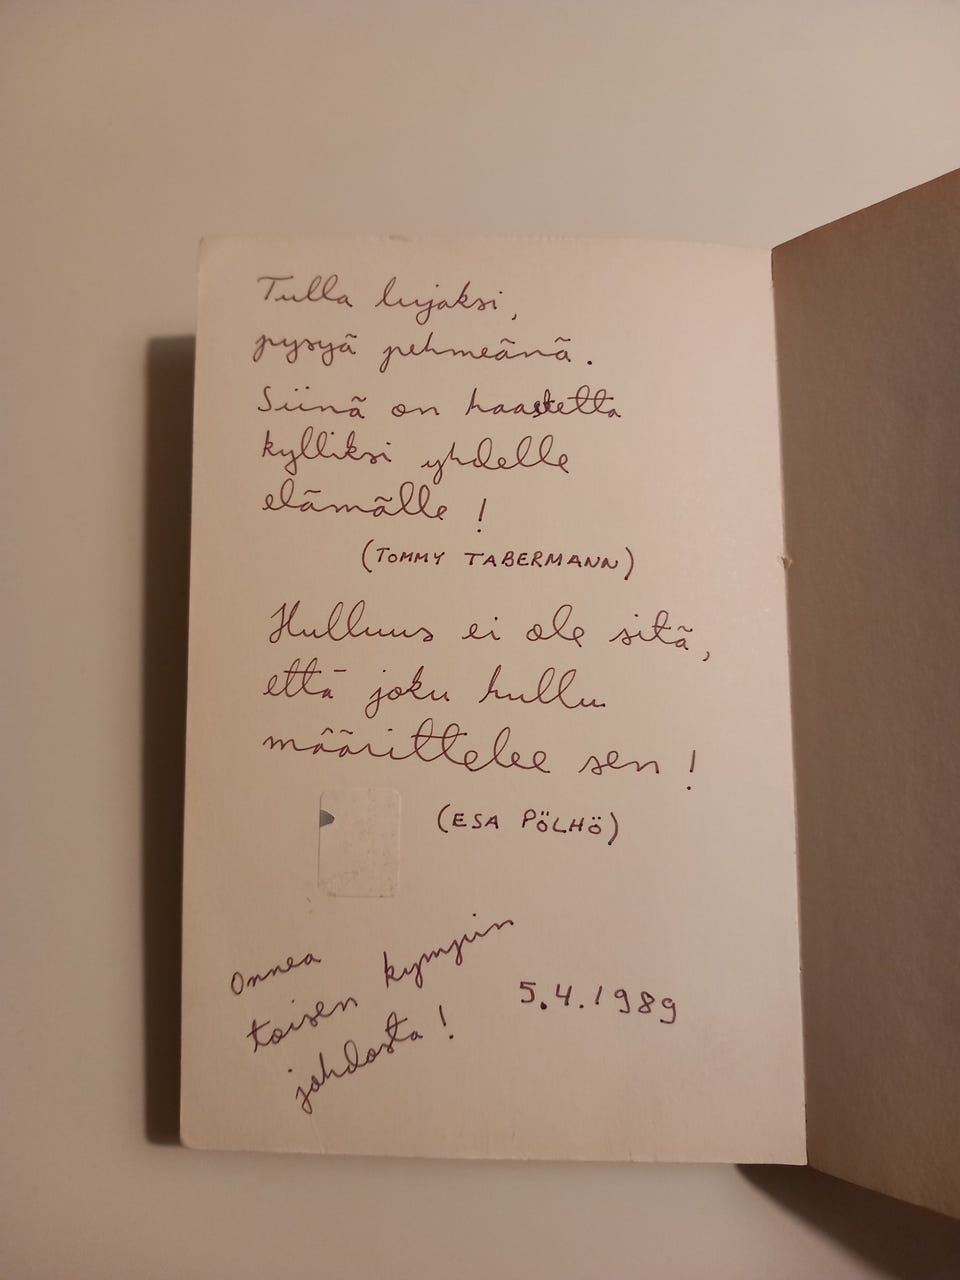 Tulla lujaksi,
pysyä pehmeänä.
Siinä on haastetta
kylliksi yhdelle
elämälle !
(TOMMY TABERMANN)
Hulluus ei ole sitä,
että joku hullu
määrittelee sen !
(ESA PÖLHÖ)
Onnea
toisen kympin
johdosta !
5.4.1989